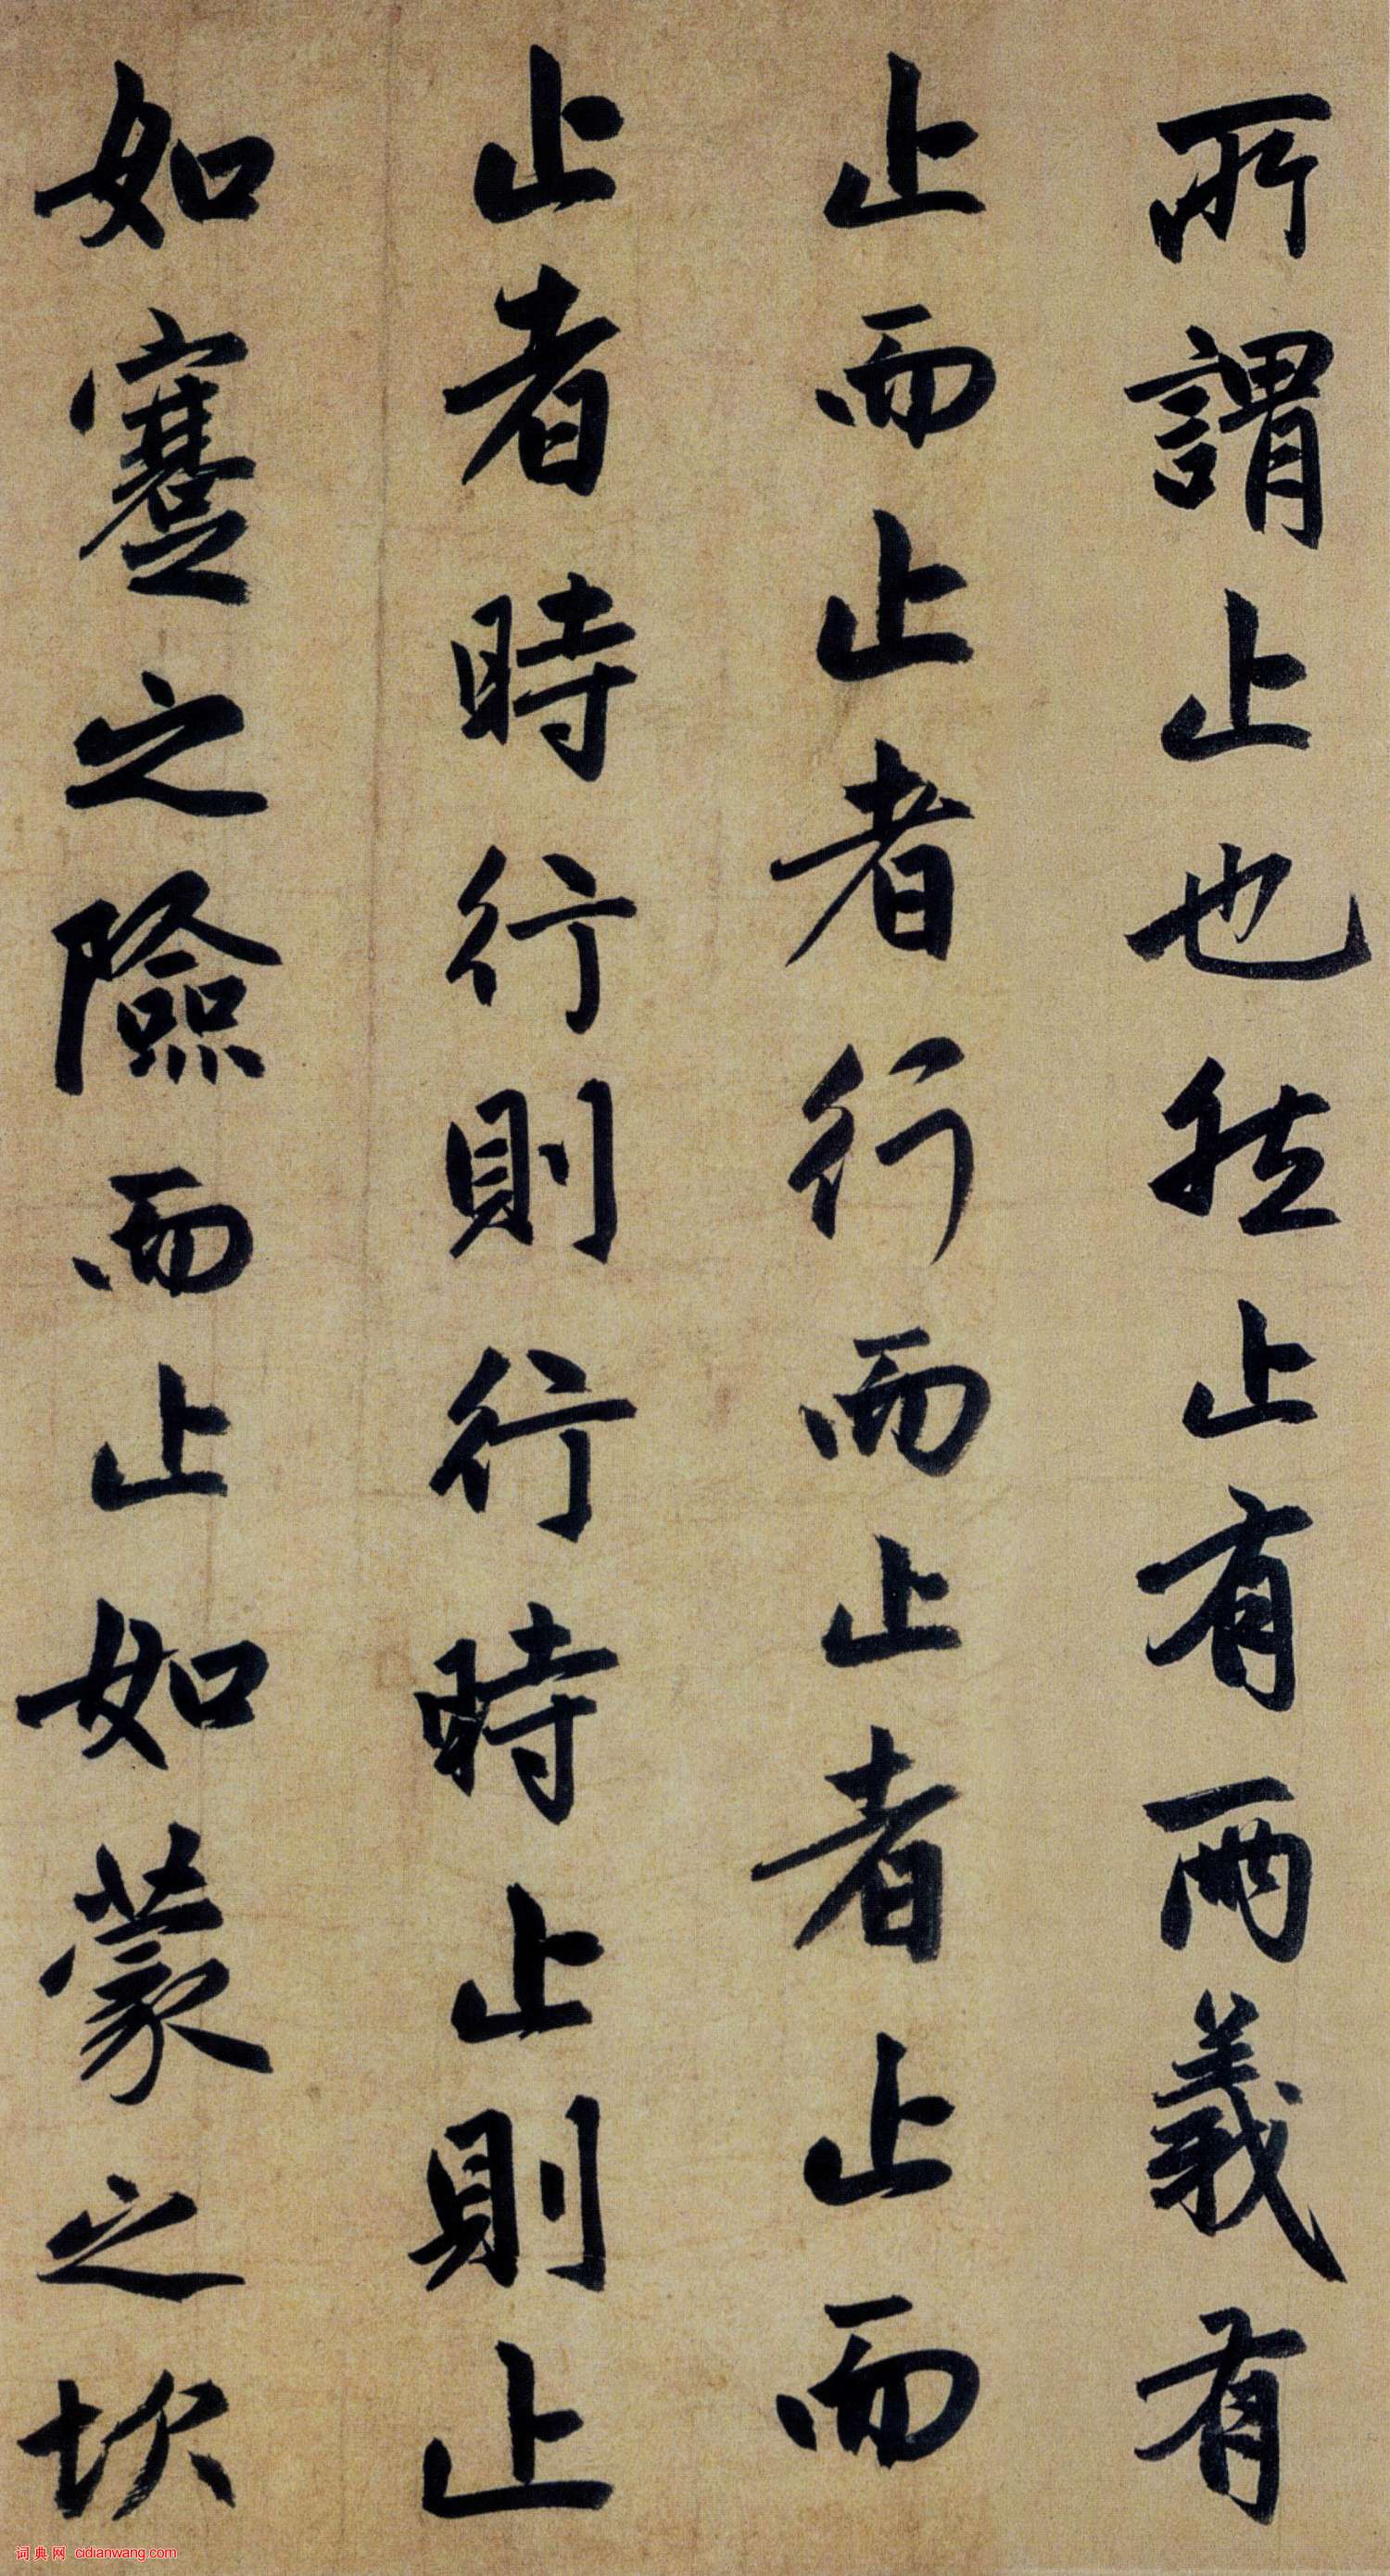 所謂止也然止有兩義有
止而止者行而止者止而
止者時行則行時止則止
如蹇之險而止如蒙之坎
词典网 cidianwang.com